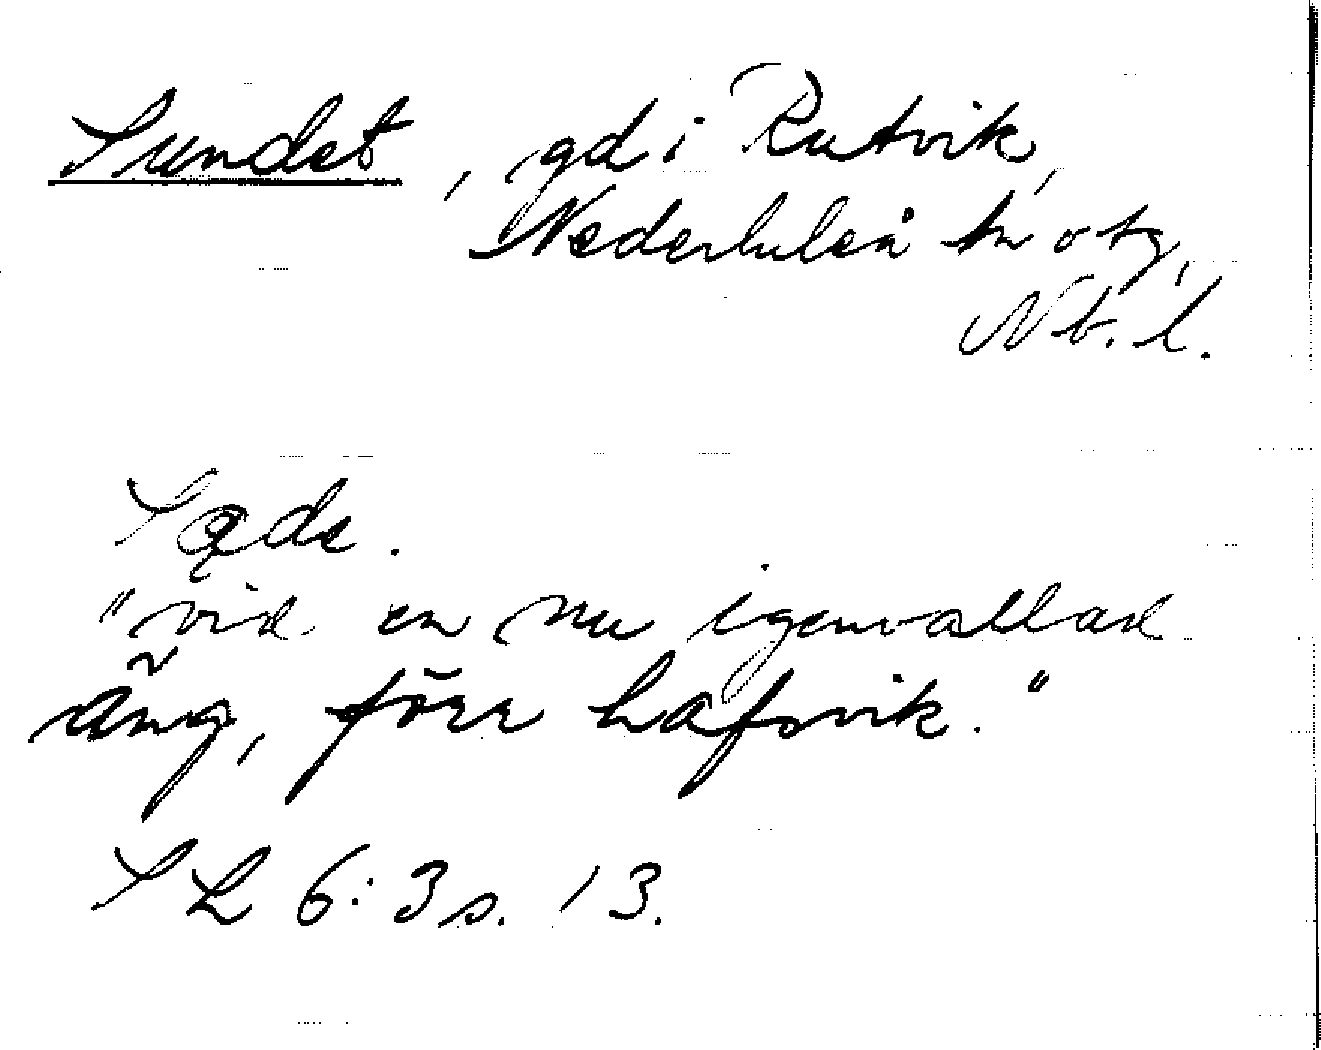 Sundet, gd i Rutvik,
Nederluleå sn o tg,
Nb. l.
"vid en nu igenvallad
äng, förr hafsvik."
SL 6:3 s. 13.